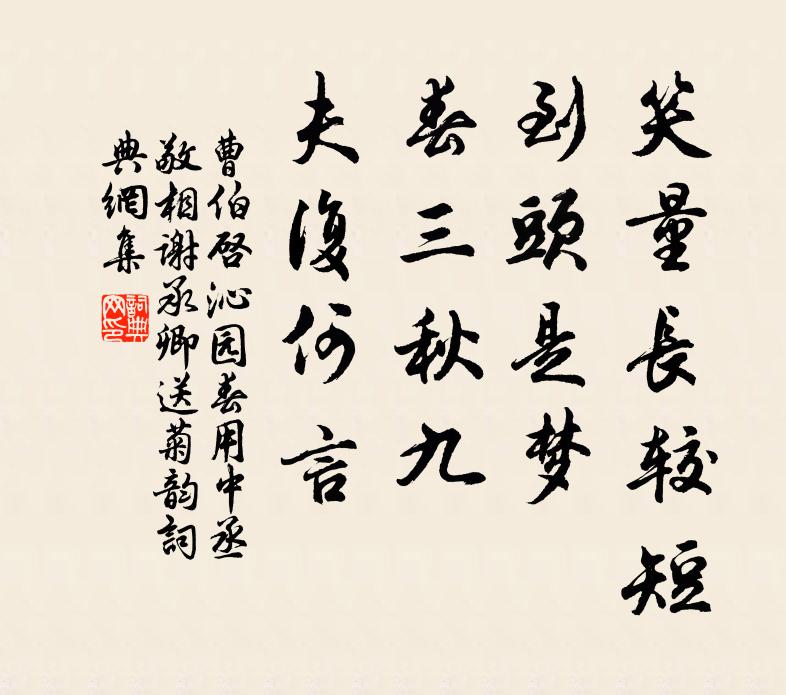 笑量長較短
到頭是梦
春三秋九
夫復何言
曹伯啓沁园春用中丞
敬相谢承卿送菊韵詞
典網集
詞典
网印